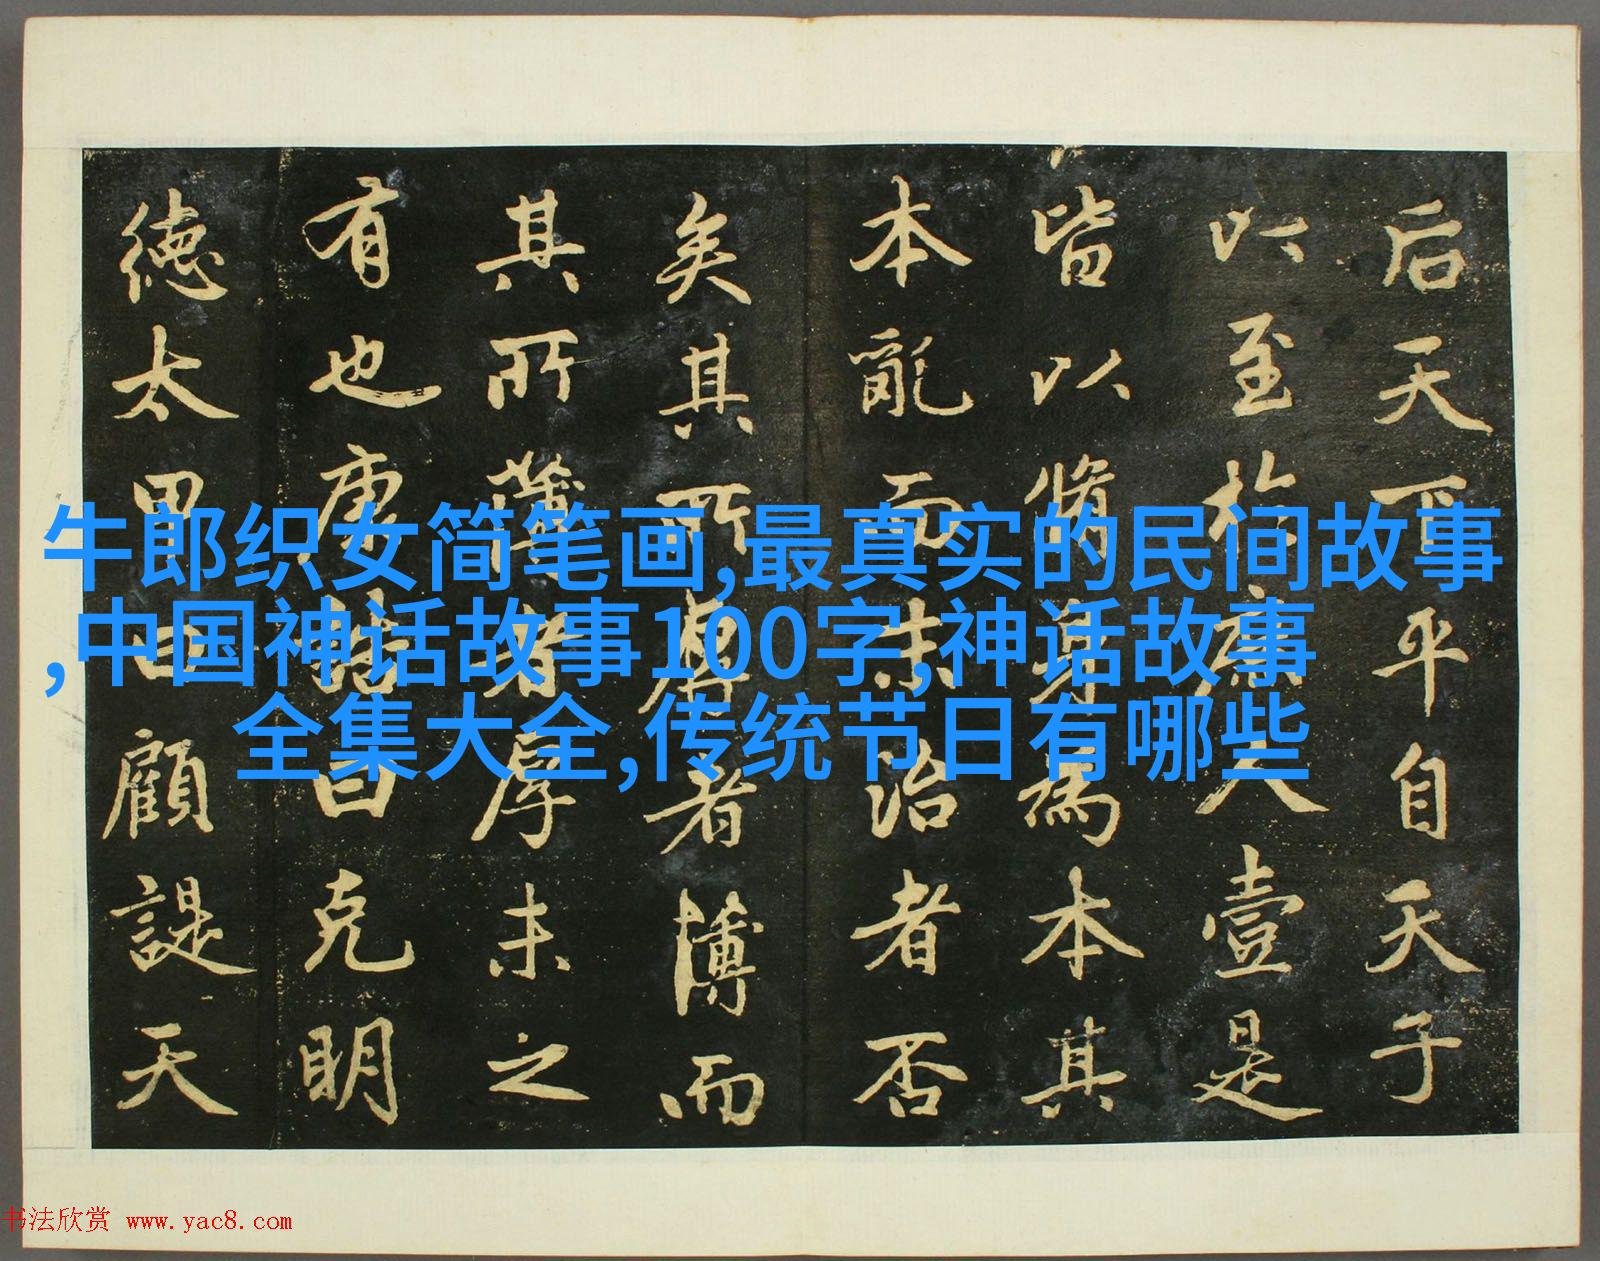 后天下平自天子
以至於庶人壹是
皆以脩身為本其
本亂而末治者否
矣其所厚者薄而
其所薄者厚未之
有也康誥曰克明
德太甲曰顧諟天
牛郎织女简笔画,最真实的民间故事
,中国神话故事100字,神话故事
全集大全,传统节日有哪些
书法欣赏 www.yac8.com